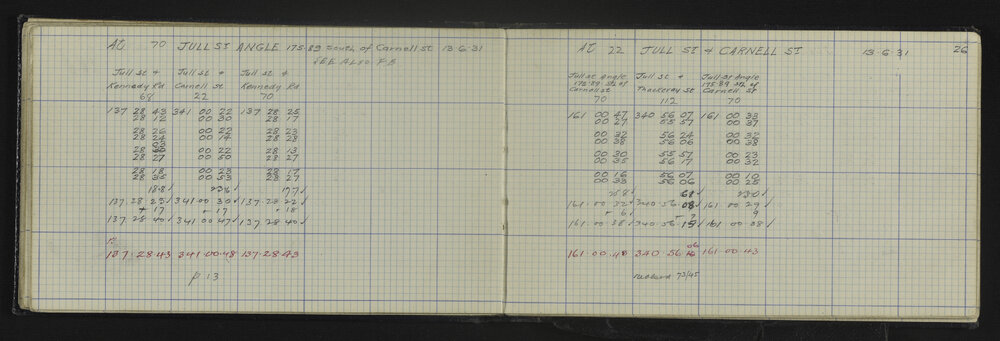 At 70 JULL ST ANGLE 175·89 South of Carnell St 13·6·31
SEE ALSO F.B
Jull St & Jull St & Jull St &
Kennedy Rd Carnell St Kennedy Rd
68 22 70
137 28 43 341 00 22 137 28 25
28 12 00 30 28 17
28 26 00 22 28 23
28 24 00 14 28 28
28 00 22 28 13
28 27 00 50 28 27
28 18 00 23 28 17
28 35 00 53 28 27
188 √ 236 √ 177 √
137·28·23 √ 341·00·30 √ 137·28·22 √
+ 17 + 17 + 18
137·28·40 √ 341·00·47 √ 137·28·40 √
137·28·43 341·00·48 137·28·43
p.13
At 22 JULL ST & CARNELL ST 13·6·31 26
Jull St Angle Jull St & Jull St Angle
175·89 Sth of Thackeray St 175·89 Sth of
Carnell St Carnell St
70 112 70
161 00 47 340 56 07 161 00 33
00 27 55 57 00 37
00 32 56 24 00 32
00 38 56 06 00 38
00 30 55 57 00 23
00 35 56 17 00 32
00 16 56 07 00 10
00 33 56 06 00 25
258 √ 61 √ 230 √
161·00·32 √ 340·56·08 √ 161 00 29 √
+ 6 √ + 7 9
161·00·38 √ 340·56·15 √ 161·00·38 √
06
161·00·48 340 56 161·00·43
73/45